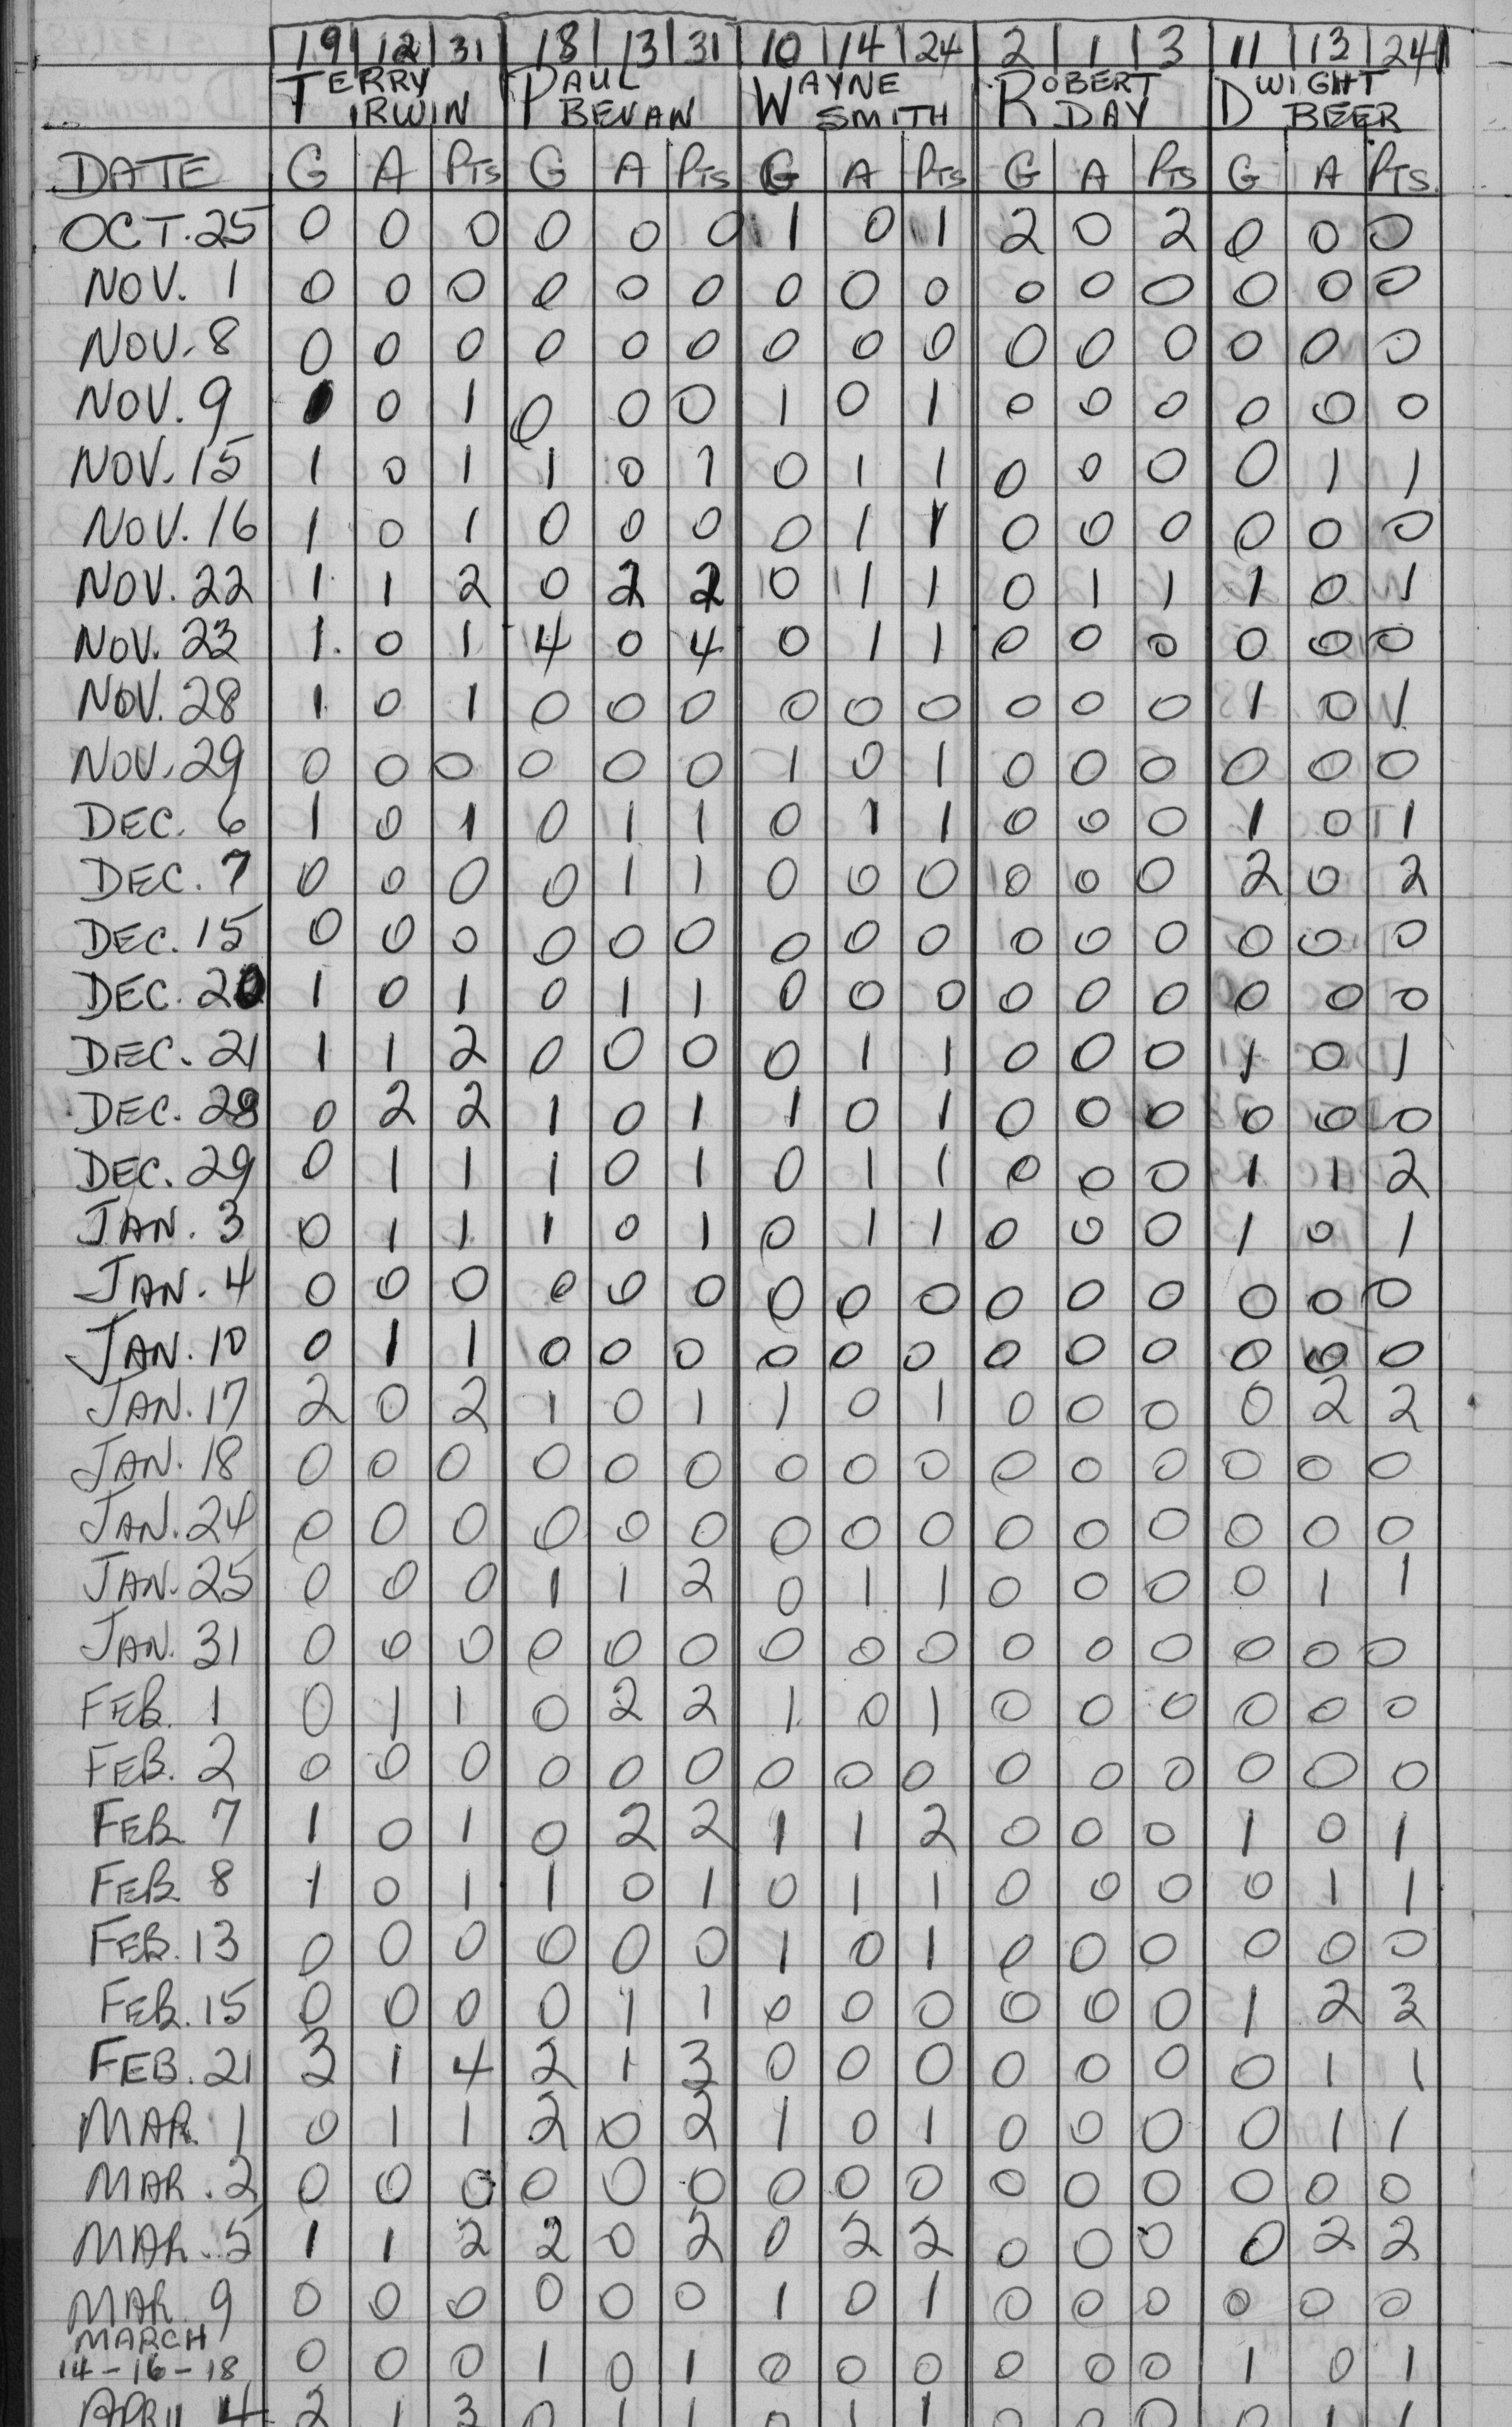 19 12 31 18 13 31 10 14 24 2 1 3 11 13 24
TERRY IRWIN PAUL BEVAN WAYNE SMITH ROBERT DAY DWIGHT BEER
DATE G A PTS G A PTS G A PTS G A PTS G A PTS.
OCT. 25 0 0 0 0 0 0 1 0 1 2 0 2 0 0 0
NOV. 1 0 0 0 0 0 0 0 0 0 0 0 0 0 0 0
NOV. 8 0 0 0 0 0 0 0 0 0 0 0 0 0 0 0
NOV. 9 1 0 1 0 0 0 1 0 1 0 0 0 0 0 0
NOV. 15 1 0 1 1 0 1 0 1 1 0 0 0 0 1 1
NOV. 16 1 0 1 0 0 0 0 1 1 0 0 0 0 0 0
NOV. 22 1 1 2 0 2 2 0 1 1 0 1 1 1 0 1
NOV. 23 1 0 1 4 0 4 0 1 1 0 0 0 0 0 0
NOV. 28 1 0 1 0 0 0 0 0 0 0 0 0 1 0 1
NOV. 29 0 0 0 0 0 0 1 0 1 0 0 0 0 0 0
DEC. 6 1 0 1 0 1 1 0 1 1 0 0 0 1 0 1
DEC. 7 0 0 0 0 1 1 0 0 0 0 0 0 2 0 2
DEC. 15 0 0 0 0 0 0 0 0 0 0 0 0 0 0 0
DEC. 20 1 0 1 0 1 1 0 0 0 0 0 0 0 0 0
DEC. 21 1 1 2 0 0 0 0 1 1 0 0 0 1 0 1
DEC. 28 0 2 2 1 0 1 1 0 1 0 0 0 0 0 0
DEC. 29 0 1 1 1 0 1 0 1 1 0 0 0 1 1 2
JAN. 3 0 1 1 1 0 1 0 1 1 0 0 0 1 0 1
JAN. 4 0 0 0 0 0 0 0 0 0 0 0 0 0 0 0
JAN. 10 0 1 1 0 0 0 0 0 0 0 0 0 0 0 0
JAN. 17 2 0 2 1 0 1 1 0 1 0 0 0 0 2 2
JAN. 18 0 0 0 0 0 0 0 0 0 0 0 0 0 0 0
JAN. 24 0 0 0 0 0 0 0 0 0 0 0 0 0 0 0
JAN. 25 0 0 0 1 1 2 0 1 1 0 0 0 0 1 1
JAN. 31 0 0 0 0 0 0 0 0 0 0 0 0 0 0 0
FEB. 1 0 1 1 0 2 2 1 0 1 0 0 0 0 0 0
FEB. 2 0 0 0 0 0 0 0 0 0 0 0 0 0 0 0
FEB 7 1 0 1 0 2 2 1 1 2 0 0 0 1 0 1
FEB 8 1 0 1 1 0 1 0 1 1 0 0 0 0 1 1
FEB. 13 0 0 0 0 0 0 1 0 1 0 0 0 0 0 0
FEB. 15 0 0 0 0 1 1 0 0 0 0 0 0 1 2 3
FEB. 21 3 1 4 2 1 3 0 0 0 0 0 0 0 1 1
MAR. 1 0 1 1 2 0 2 1 0 1 0 0 0 0 1 1
MAR. 2 0 0 0 0 0 0 0 0 0 0 0 0 0 0 0
MAR. 5 1 1 2 2 0 2 0 2 2 0 0 0 0 2 2
MAR 9 0 0 0 0 0 0 1 0 1 0 0 0 0 0 0
MARCH
14-16-18 0 0 0 1 0 1 0 0 0 0 0 0 1 0 1
APRIL 4 2 1 3 0 1 1 0 1 1 0 0 0 0 1 1